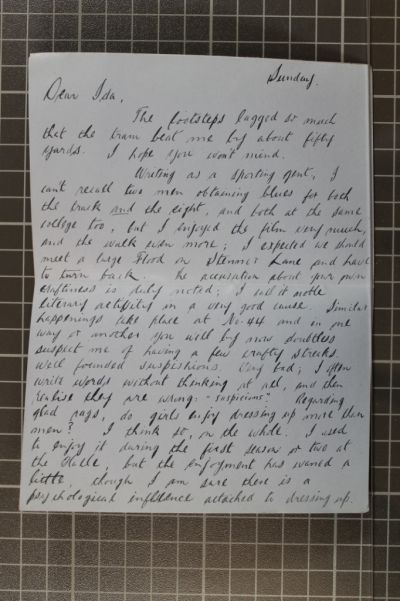 Sunday.
Dear Ida,
The footsteps lagged so much
that the tram beat me by about fifty
yards. I hope you won't mind.
Writing as a sporting gent, I
can't recall two men obtaining blues for both
the track and the eight, and both at the same
college too, but I enjoyed the film very much,
and the walk even more; I expected we should
meet a large flood on Lane and have
to turn back. The accusation about your own
craftiness is duly noted; I call it noble
literary activity in a very good cause. Similar
happenings take place at No. 44 and in one
way or another you will by now doubtless
suspect me of having a few crafty streaks.
Well founded suspissions. Very bad; I often
write words without thinking at all, and then
realise they are wrong - "suspicions". Regarding
glad rags, do girls enjoy dressing up more than
men? I think so, on the whole. I used
to enjoy it during the first season or two at
the Halle, but the enjoyment has waned a
little, though I am sure there is a
psychological influence attached to dressing up.